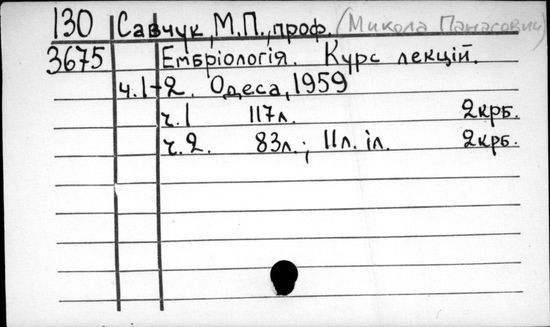 130 Савчук, М.П., проф. (Микола Панасович)
3675 Ембріологія. Курс лекцій.
ч.1-2. Одеса, 1959
ч.1 117л. 2крб.
ч.2. 83л.; 11л. іл. 2крб.